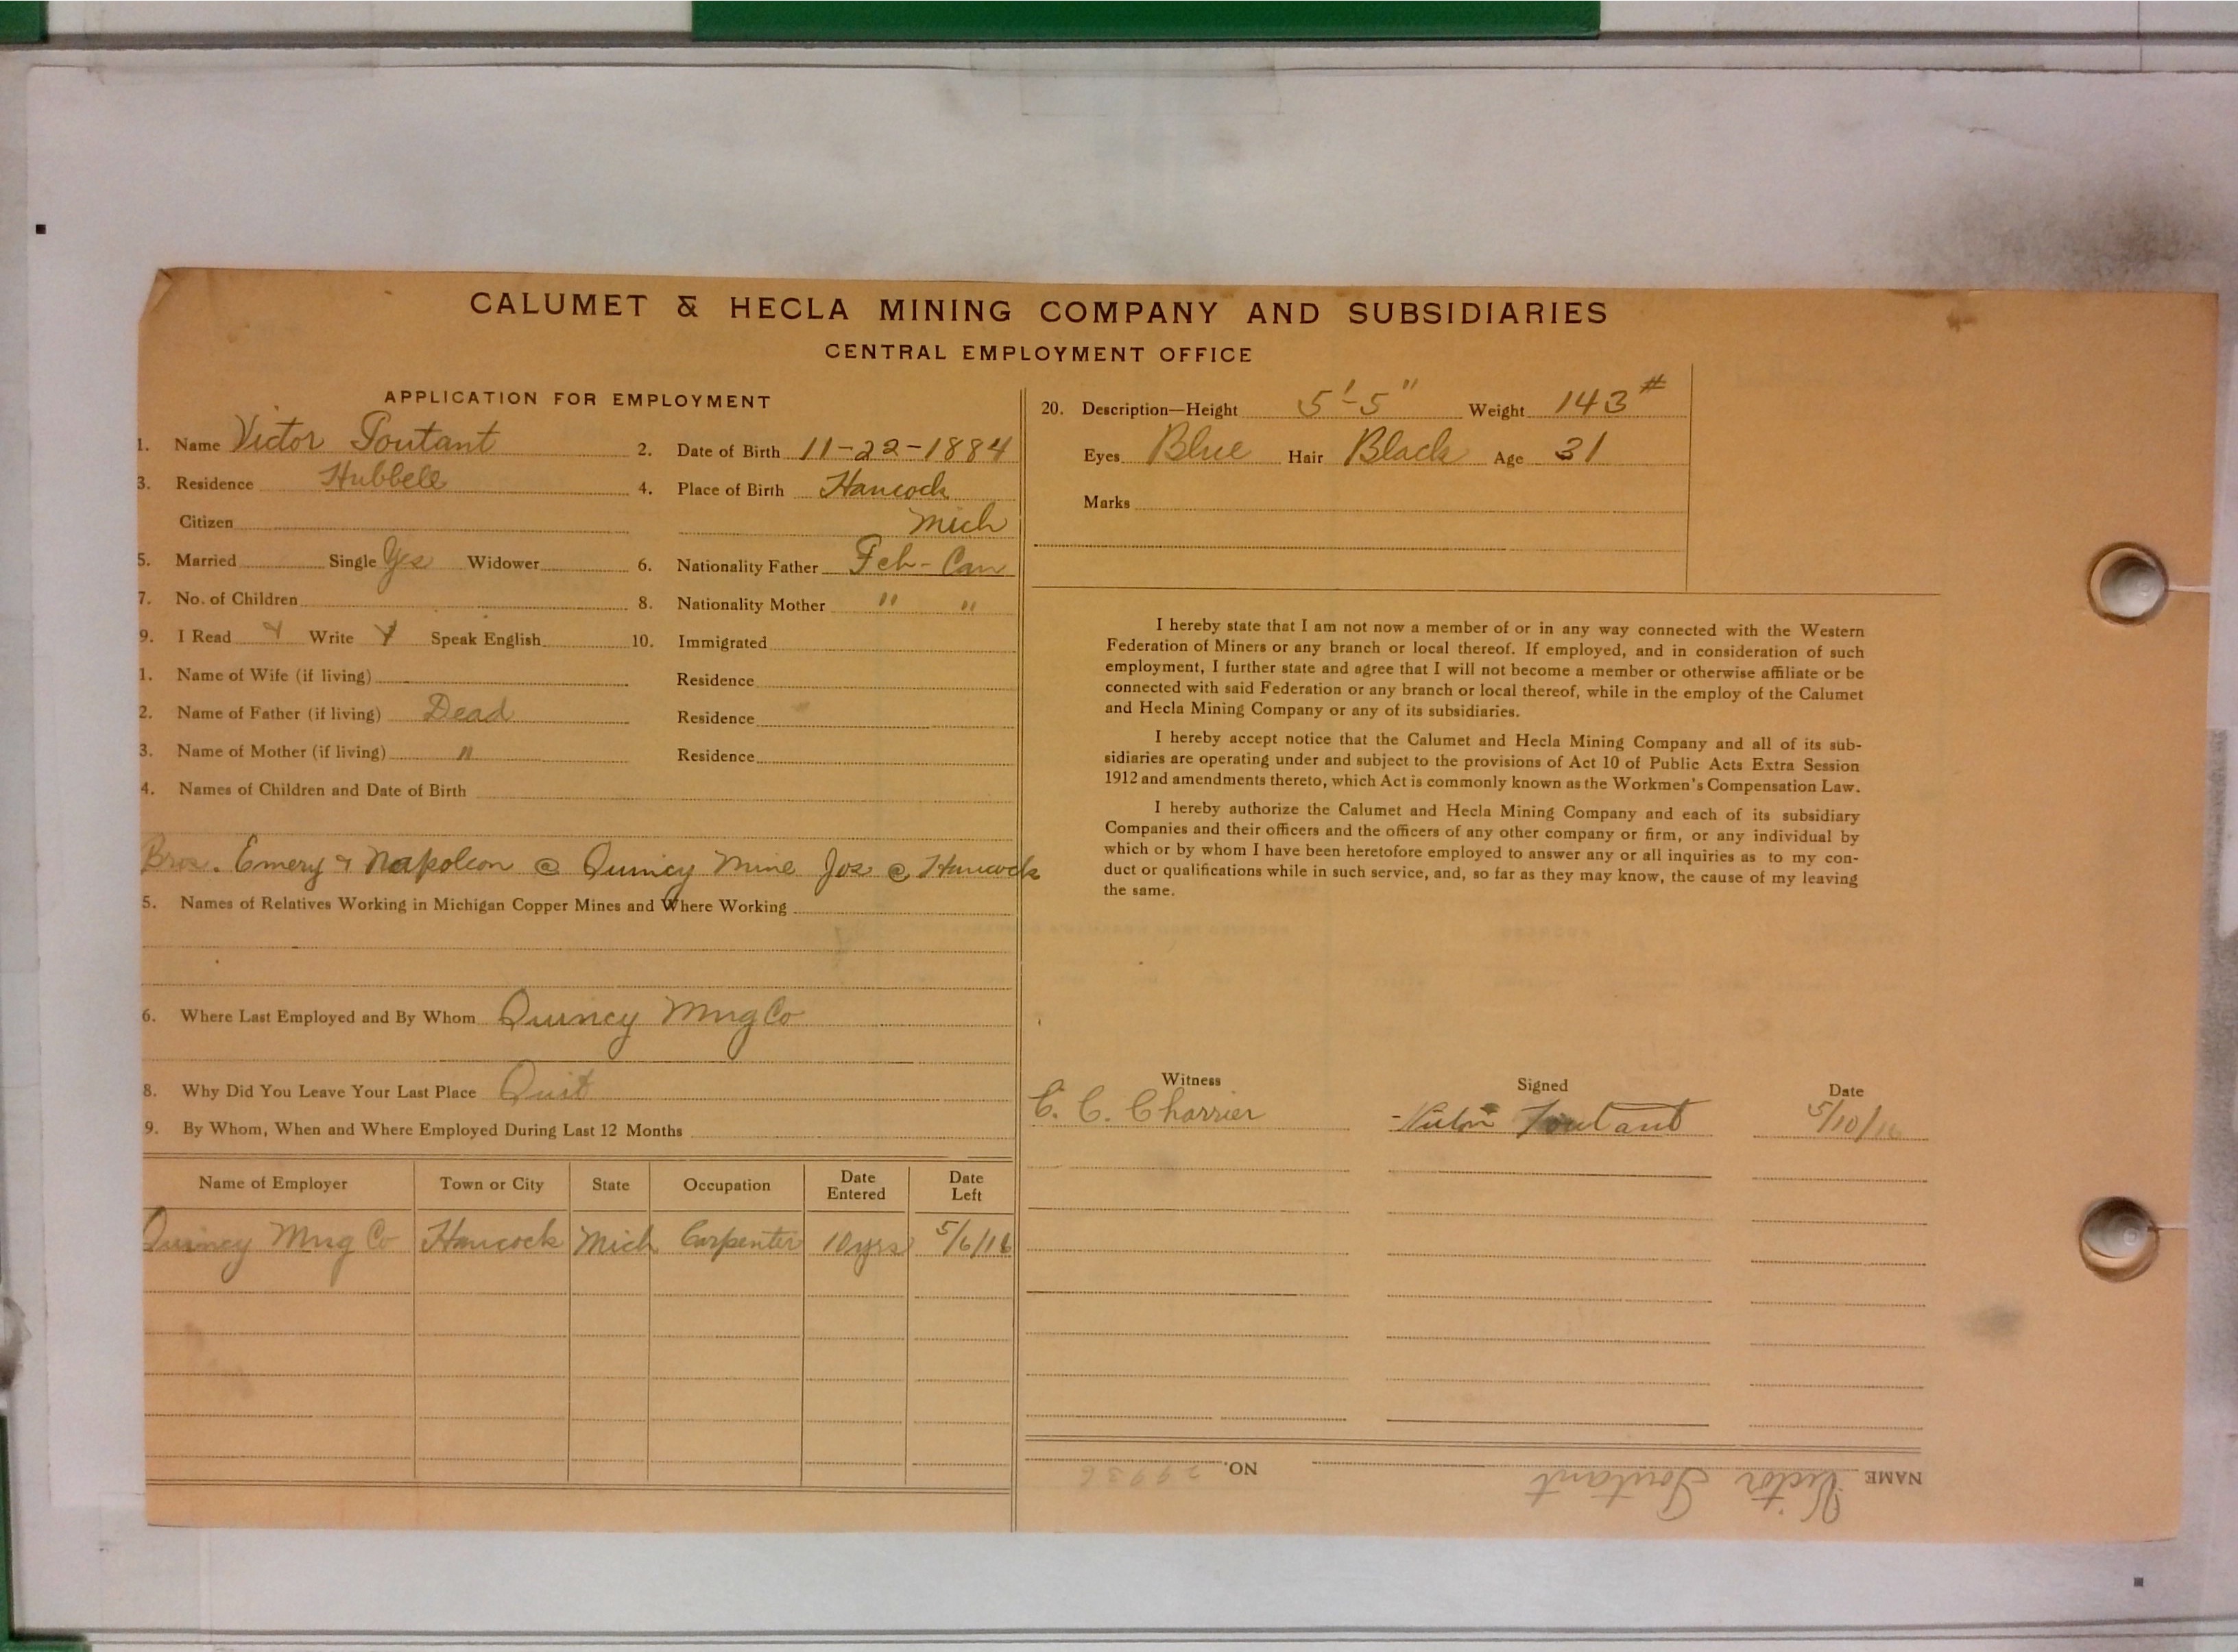 CALUMET & HECLA MINING COMPANY AND SUBSIDIARIES
CENTRAL EMPLOYMENT OFFICE
APPLICATION FOR EMPLOYMENT
1. Name Victor Toutant 2. Date of Birth 11-22-1884
3. Residence Hubbell 4. Place of Birth Hancock
Citizen Mich
5. Married Single Yes Widower 6. Nationality Father Fch-Can
7. No. of Children 8. Nationality Mother " "
9. I Read Y Write Y Speak English 10. Immigrated
1. Name of Wife (if living) Residence
2. Name of Father (if living) Dead Residence
3. Name of Mother (if living) " Residence
4. Names of Children and Date of Birth
Bros. Emery & Napoleon @ Quincy Mine Jos @ Hancock
5. Names of Relatives Working in Michigan Copper Mines and Where Working
6. Where Last Employed and By Whom Quincy Mng Co
8. Why Did You Leave Your Last Place Quit
9. By Whom, When and Where Employed During Last 12 Months
Name of Employer Town or City State Occupation Date Entered Date Left
Quincy Mng Co Hancock Mich Carpenter 10 yrs 5/6/16
20. Description—Height 5'-5" Weight 143#
Eyes Blue Hair Black Age 31
Marks
I hereby state that I am not now a member of or in any way connected with the Western
Federation of Miners or any branch or local thereof. If employed, and in consideration of such
employment, I further state and agree that I will not become a member or otherwise affiliate or be
connected with said Federation or any branch or local thereof, while in the employ of the Calumet
and Hecla Mining Company or any of its subsidiaries.
I hereby accept notice that the Calumet and Hecla Mining Company and all of its sub-
sidiaries are operating under and subject to the provisions of Act 10 of Public Acts Extra Session
1912 and amendments thereto, which Act is commonly known as the Workmen's Compensation Law.
I hereby authorize the Calumet and Hecla Mining Company and each of its subsidiary
Companies and their officers and the officers of any other company or firm, or any individual by
which or by whom I have been heretofore employed to answer any or all inquiries as to my con-
duct or qualifications while in such service, and, so far as they may know, the cause of my leaving
the same.
Witness Signed Date
C. C. Charrier Victor Toutant 5/10/16
NAME Victor Toutant NO. 29936